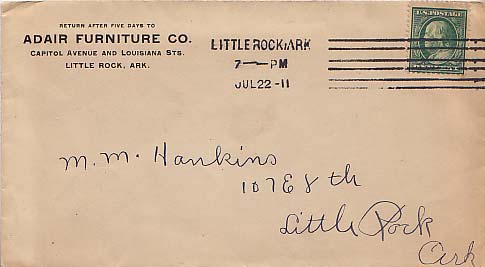 RETURN AFTER FIVE DAYS TO
ADAIR FURNITURE CO.
CAPITOL AVENUE AND LOUISIANA STS.
LITTLE ROCK, ARK.
LITTLE ROCK, ARK
7—PM
JUL 22-11
U.S. POSTAGE
M. M. Hankins
107 E 8 th
Little Rock
Ark